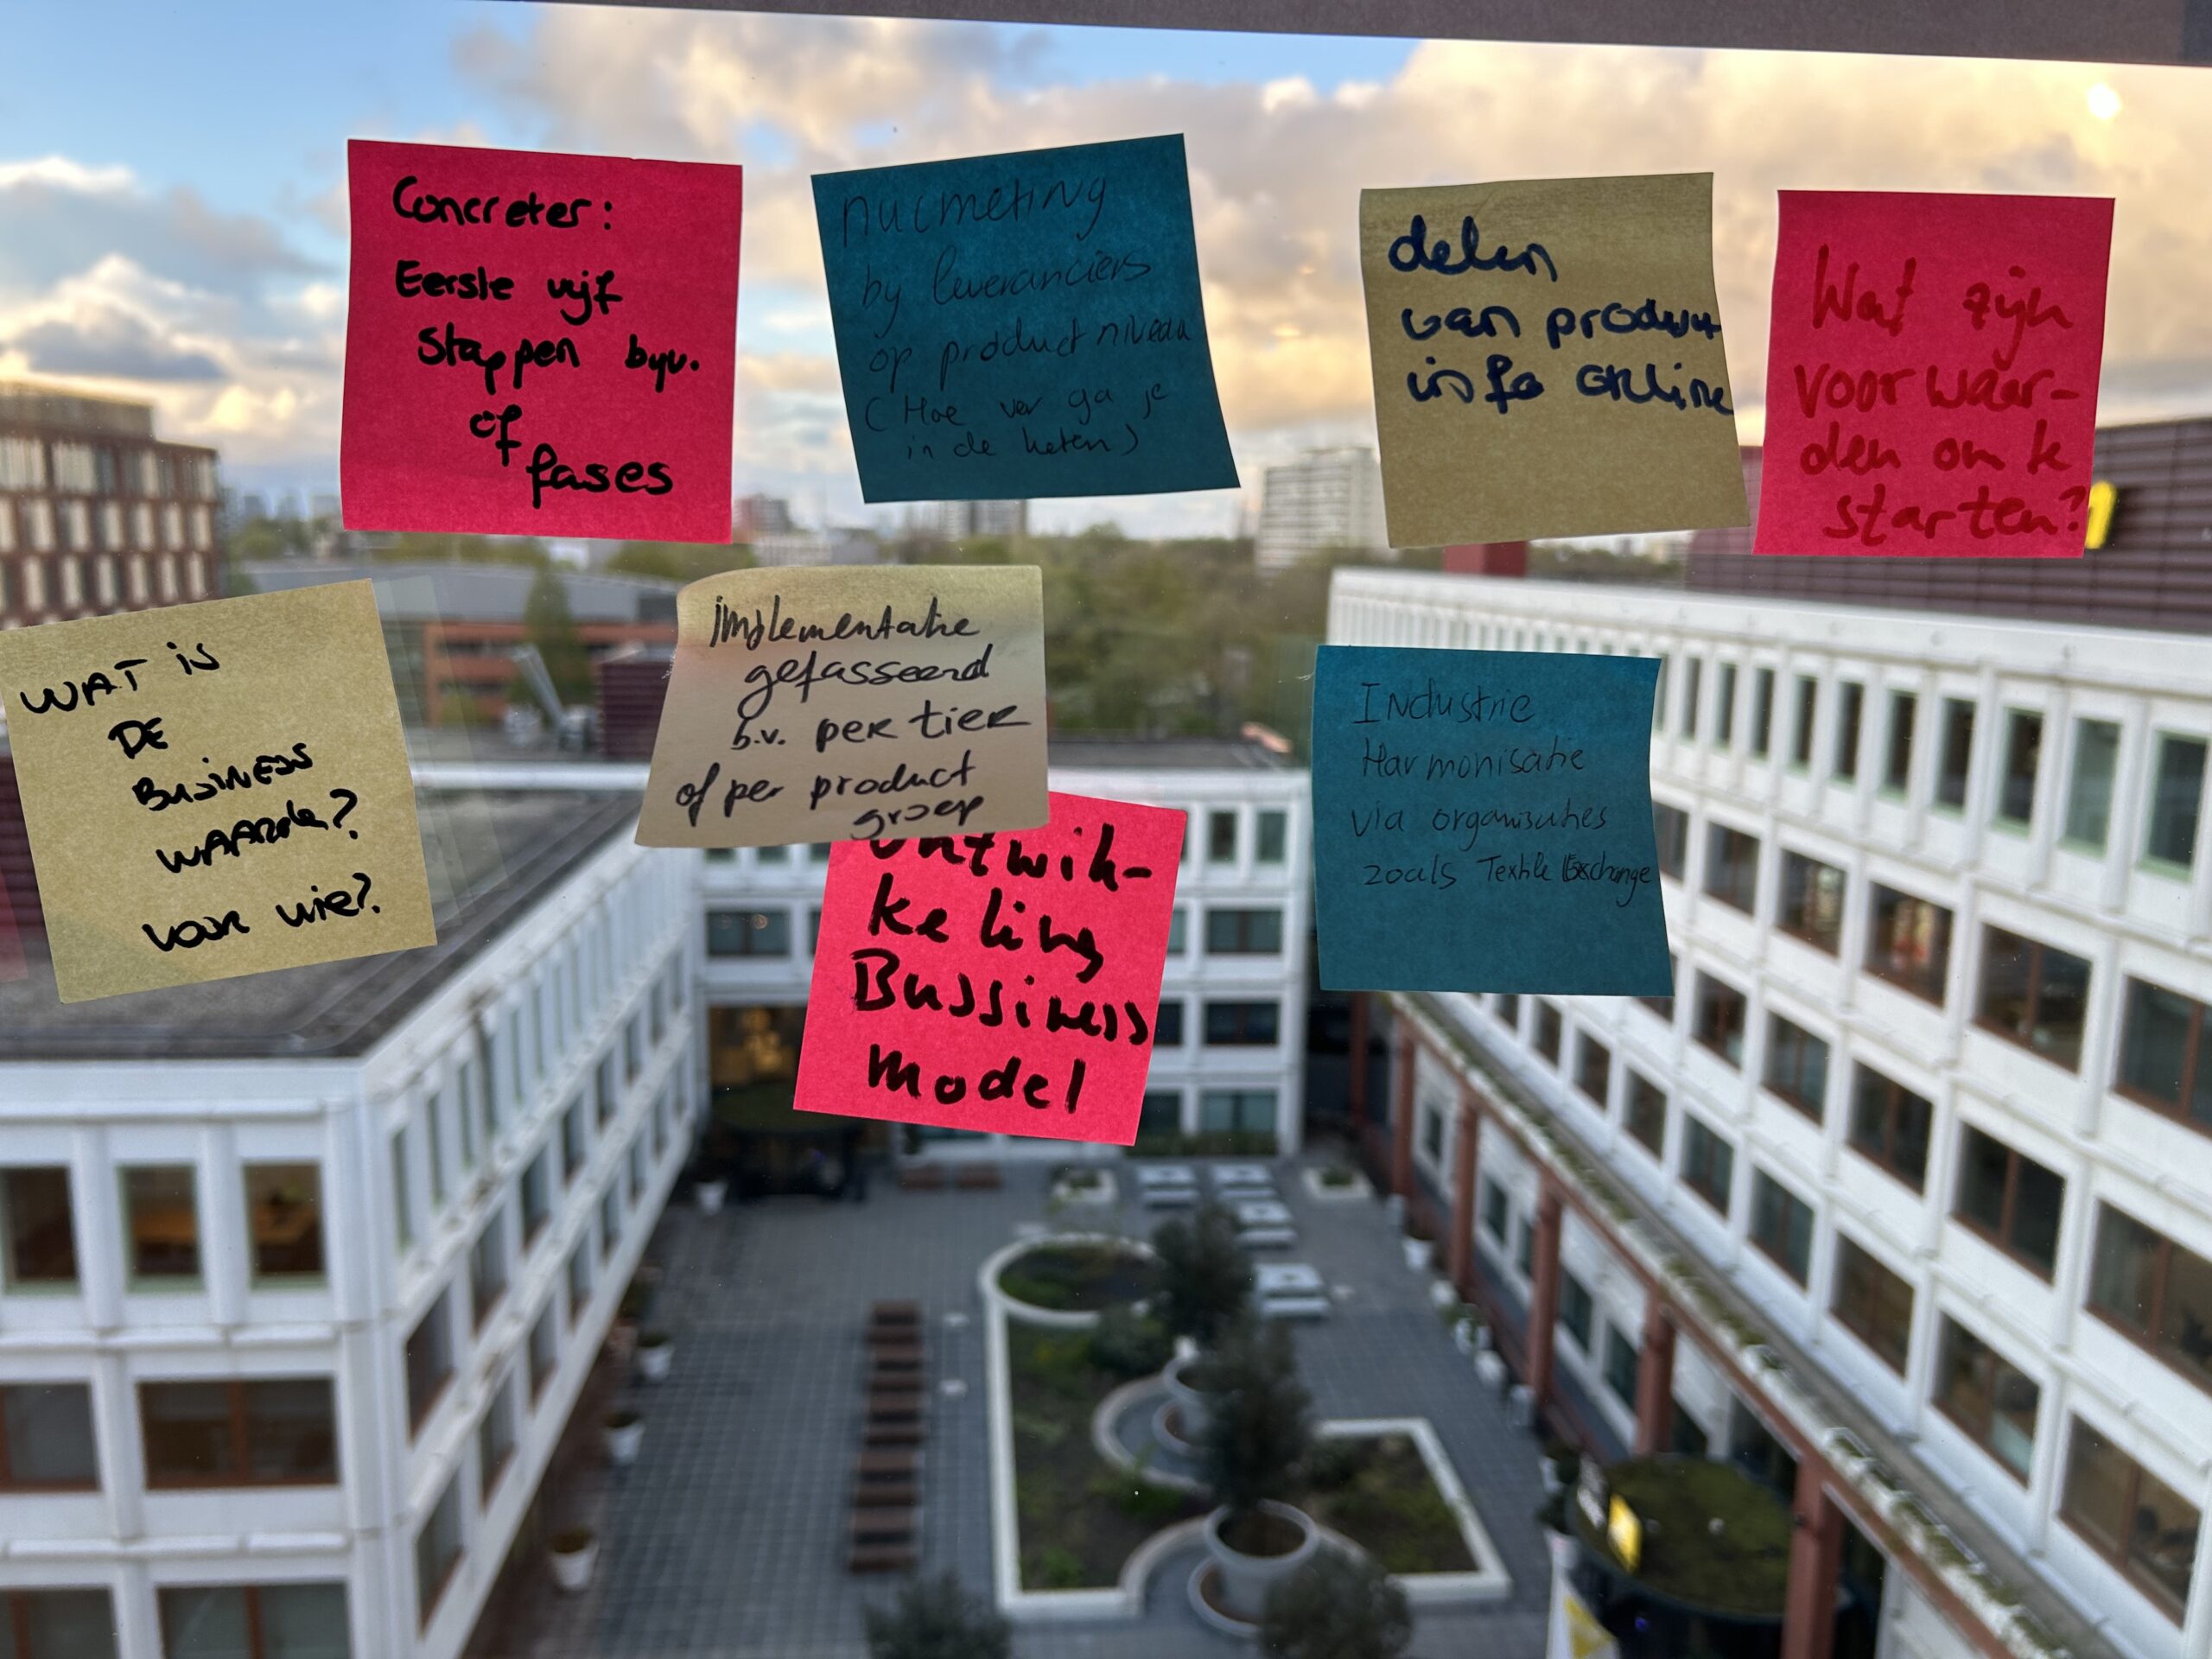 Concreter:
Eerste vijf
stappen bijv.
of
fases
nulmeting
by leveranciers
op product niveau
(Hoe ver ga je
in de keten)
delen
van product
info online
Wat zijn
voorwaar-
den om te
starten?
WAT is
DE
BUSINESS
WAARde?
voor wie?
implementatie
gefasseerd
b.v. per tier
of per product
groep
ontwik-
keling
Bussiness
model
Industrie
Harmonisatie
via organisaties
zoals Textile Exchange